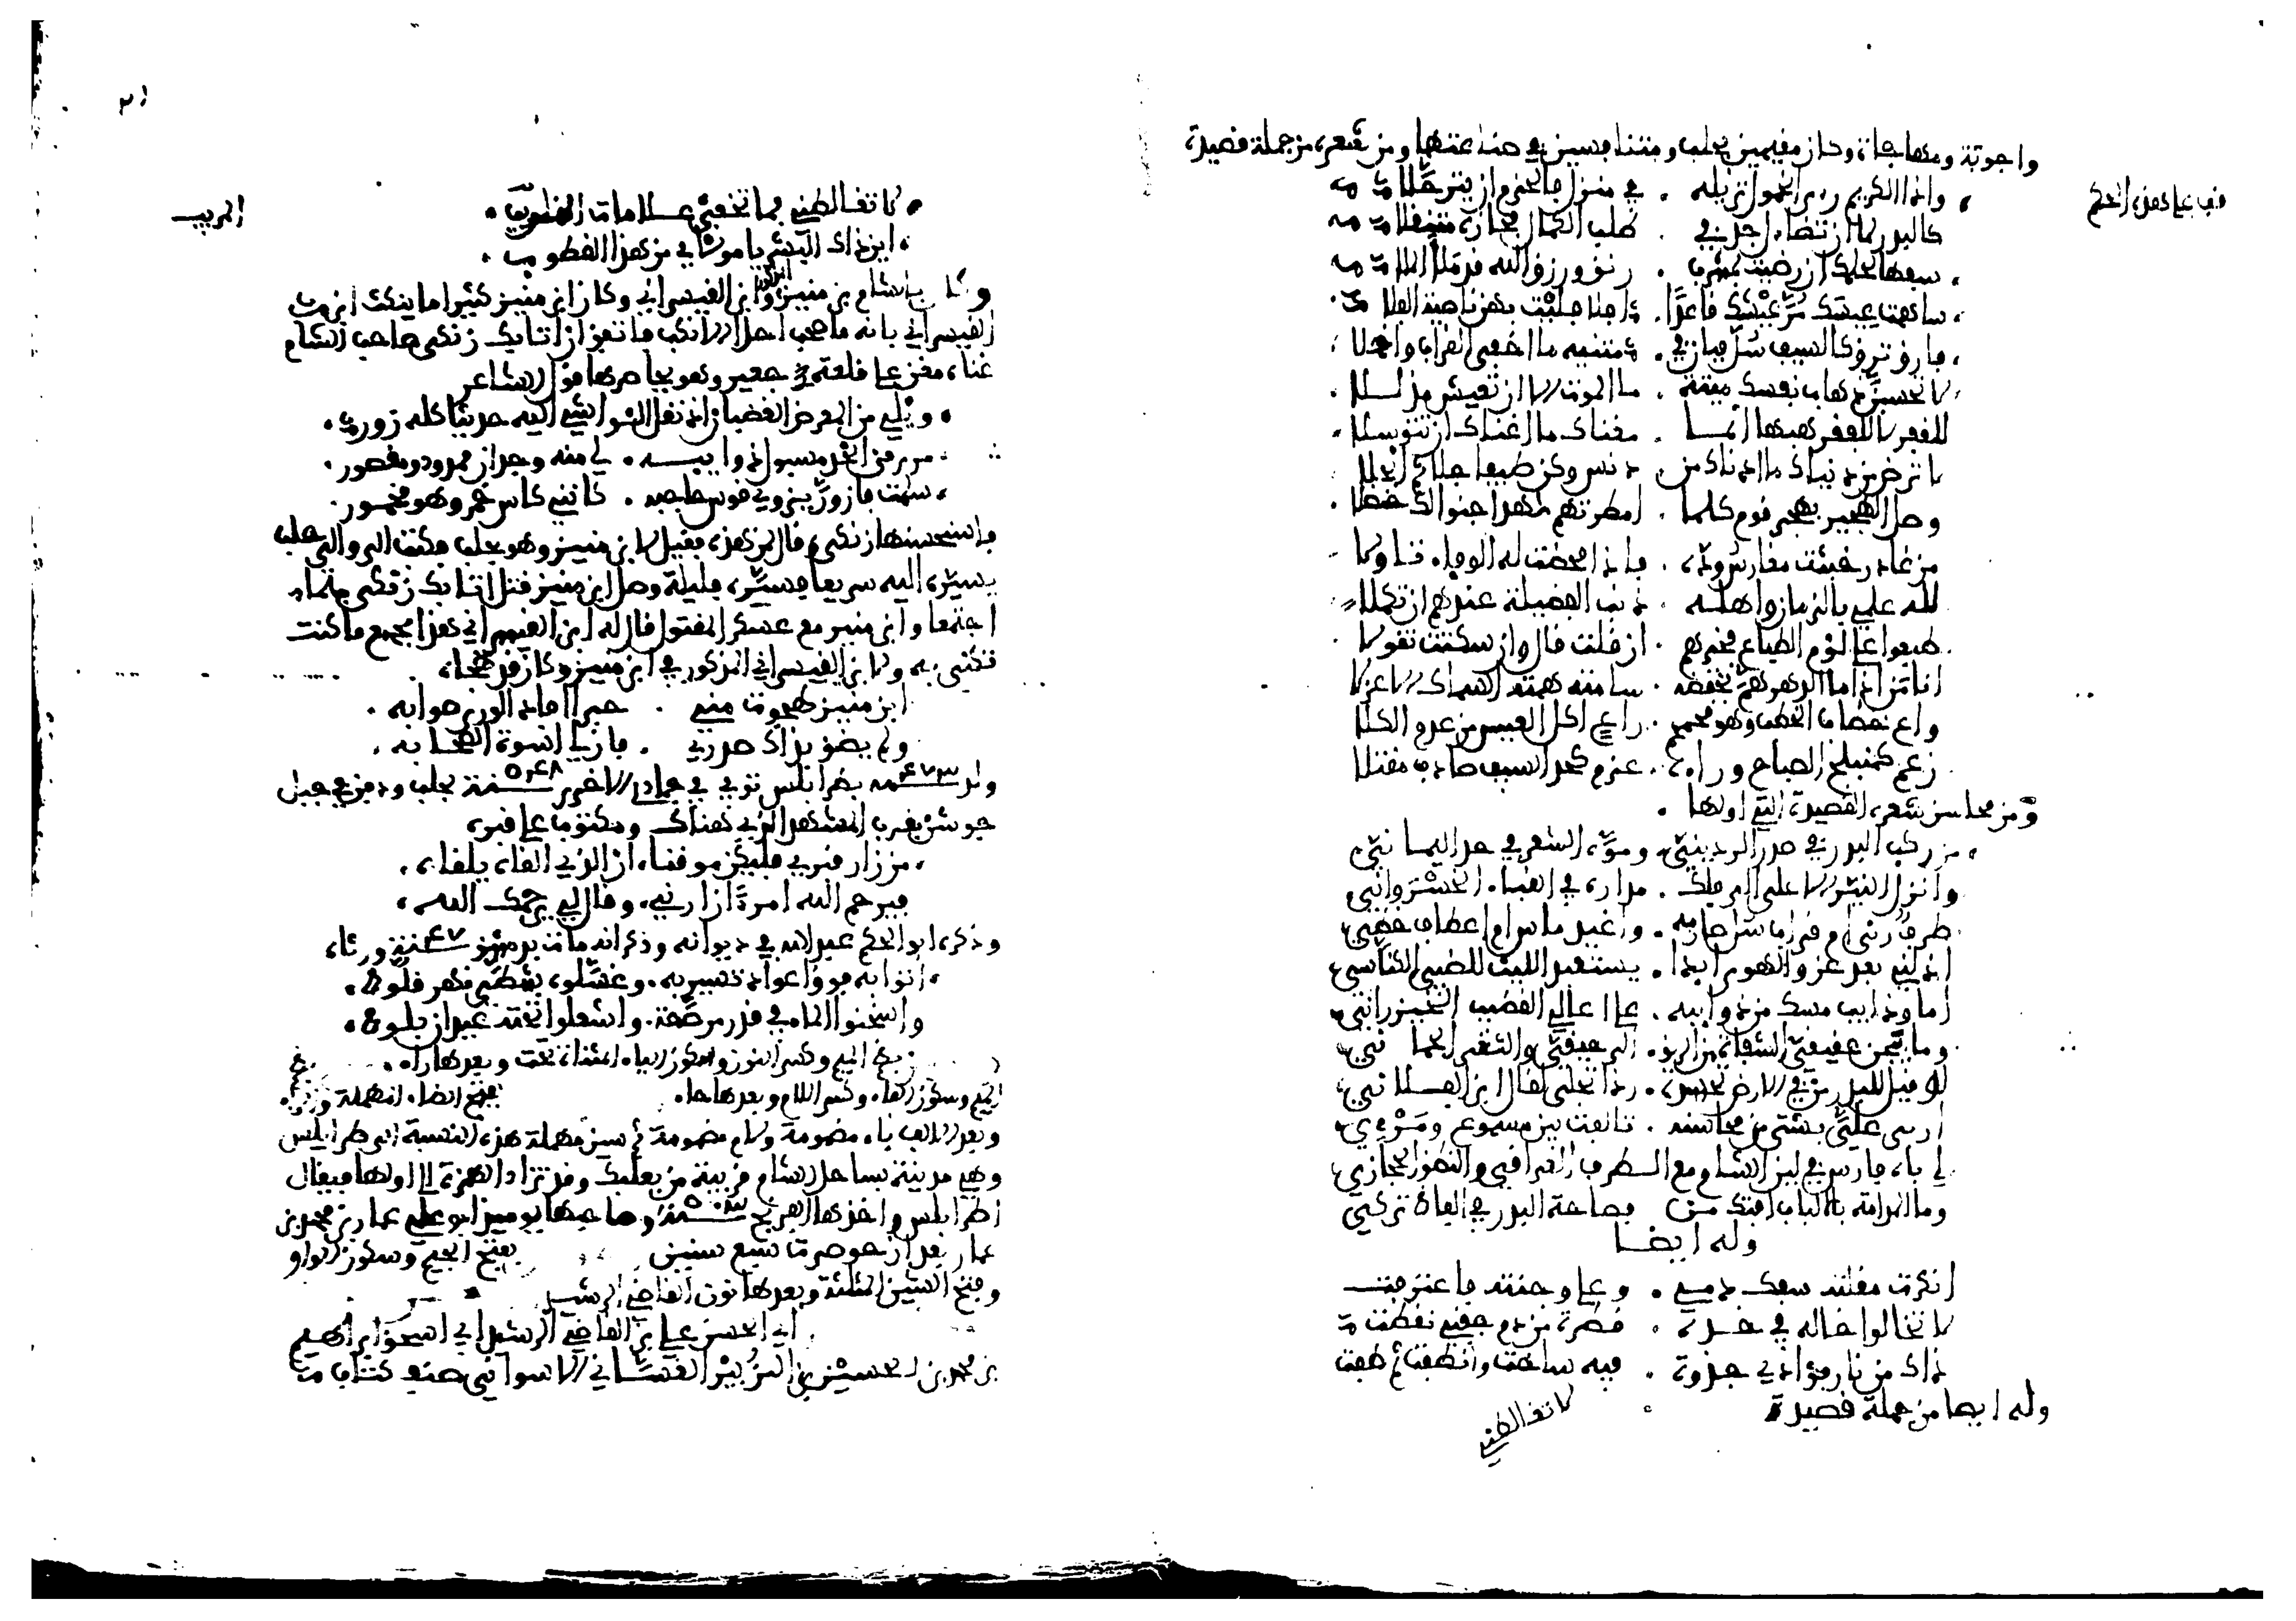 واجوبة ومهاجاة وكان مقيمين بحلب ومتنافسين في صناعتهما ومن شعره من جملة قصيدة
قف على هذه الحكم
واذا الكريم رءا الخمول نزيله . في منزل فالحزم ان يترحلا
كالبدر لما ان تضاءل جد في . طلب الكمال فحازه متنقلا
سفها لحلمك ان رضيت بمشرب . رنق ورزق الله قد ملأ الملا
ساهمت عيسك مر عيشك قاعدا . افلا فليت بهن ناصية الفلا
فارق ترق كالسيف سل فبان في . متنيه ما اخفى القراب واخملا
لا تحسبن ذهاب نفسك ميتة . ما الموت الا ان تعيش مذللا
للقفر لا للفقر هبها انما . مغناك ما اغناك ان تتوسلا
لا ترض من دنياك ما ادناك من . دنس وكن طيفا جلا ثم انجلا
وصل الهجير بهجر قوم كلما . امطرتهم شهدا جنوا لك حنظلا
من غادر خبثت مغارس وده . فاذا محضت له الوفاء تاولا
لله علمي بالزمان واهله . ذنب الفضيلة عندهم ان تكملا
طبعوا على لؤم الطباع فخيرهم . ان قلت قال وان سكتت تقولا
انا من اذا ما الدهر هم بخفضه . سامته همته السماك الاعزلا
واع خطاب الخطب وهو مجمجم . راع اكل العيس من عدم الكلا
زعم كمنبلج الصباح وراءه . عزم كحد السيف صادف مقتلا
ومن محاسن شعره القصيدة التي اولها .
من ركب البدر في صدر الرديني . وموه السحر في حد اليماني
وانزل النير الاعلى الى فلك . مداره في القباء الخسرواني
طرف رنى ام قراب سل صارمه . واغيد ماس ام اعطاف خطي
اذلني بعد عز والهوى ابدا . يستعبد الليث للظبي الكناسي
اما وذائب مسك من ذوائبه . على اعالي القضيب الخيزراني
وما يجن عقيقي الشفاه من الريق الرحيقي والثغر الجماني
لو قيل للبدر من في الارض تحسده . اذا تجلى لقال ابن الفلاني
اربى علي بشتى من محاسنه . تالفت بين مسموع ومرءي
اباء فارس في لين الشام مع الظرف العراقي والنطق الحجازي
وما المدامة بالالباب افتك من فصاحة البدو في الفاظ تركي
وله ايضا
انكرت مقلته سفك دمي . وعلى وجنته فاعترفت
لا تخالوا خاله في خده . قطرة من دم جفني نطفت
ذاك من نار فؤادي جذوة . فيه ساخت وانطفت ثم طفت
وله ايضا من جملة قصيدة
لا تغالطني
٣١
لا تغالطني فما تخفى علامات المريب
المريب
اين ذاك البشر يا مولاي من هذا القطوب .
وكان بالشام بن منير وابن القيسراني وكان ابن منير كثيرا ما ينكت ابن
القيسراني بانه ما صحب احدا الا نكب فاتفق ان اتابك زنكي صاحب الشام
غناه مغن على قلعة جعبر وهو يحاصرها قول الشاعر
ويلي من المعرض الغضبان اذ نقل الواشي اليه حديثا كله زور
مزرفن الخد مسبول ذوائبه . لي منه وجدان ممدود ومقصور .
سلمت فازور يزوي قوس حاجبه . كانني كاس خمر وهو مخمور .
فاستحسنها زنكي وقال لمن هذه فقيل لابن منير وهو بحلب فكتب الى والي حلب
يسيره اليه سريعا فسيره فليلة وصل ابن منير قتل اتابك زنكي فلما
اجتمعا وابن منير مع عسكر المقتول قال له ابن القيسراني هذا بجميع ما كنت
تنكتني به ولابن القيسراني المذكور في ابن منير وكان قد هجاه
ابن منير هجوت مني . حبرا افاد الورى صوابه .
ولم يضق بذاك صدري . فان لي اسوة الصحابه .
ولد سنة ٤٧٣ بطرابلس توفي في جمادى الاخير سنة ٥٤٨ بحلب ودفن في جبل
جوشن بقرب المشهد الذي هناك ومكتوب على قبره
من زار قبري فليكن موقنا ان الذي القاه يلقاه
فيرحم الله امرءا زارني . وقال لي يرحمك الله
وذكره ابو الحكم عبيد الله في ديوانه وذكر انه مات بدمشق سنة ٤٧ ورثاه
اتوا به فوق اعواد تسير به . وغسلوه بشطي نهر قلوط .
واسخنوا الماء في قدر مرصصة . واشعلوا تحته عيدان بلوط .
بضم الميم وكسر النون وسكون الياء المثناة تحت وبعدها راء .
الميم وسكون الفاء وكسر اللام وبعدها حاء . بفتح الطاء المهملة
وبعد الالف باء مضمومة ولام مضمومة ثم سين مهملة هذه النسبة الى طرابلس
وهي مدينة بساحل الشام قريبة من بعلبك وقد تزاد الهمزة الى اولها فيقال
اطرابلس واخذها الفرنج سنة وصاحبها يوميذ ابو علي عمار بن محمد بن
عمار بعد ان حوصرت سبع سنين بفتح الجيم وسكون الواو
وفتح الشين المثلثة وبعدها نون القاضي الرشيد
ابي الحسن علي بن القاضي الرشيد ابي اسحق ابراهيم
بن محمد بن الحسين بن الزبير الغساني الاسواني صنف كتاب